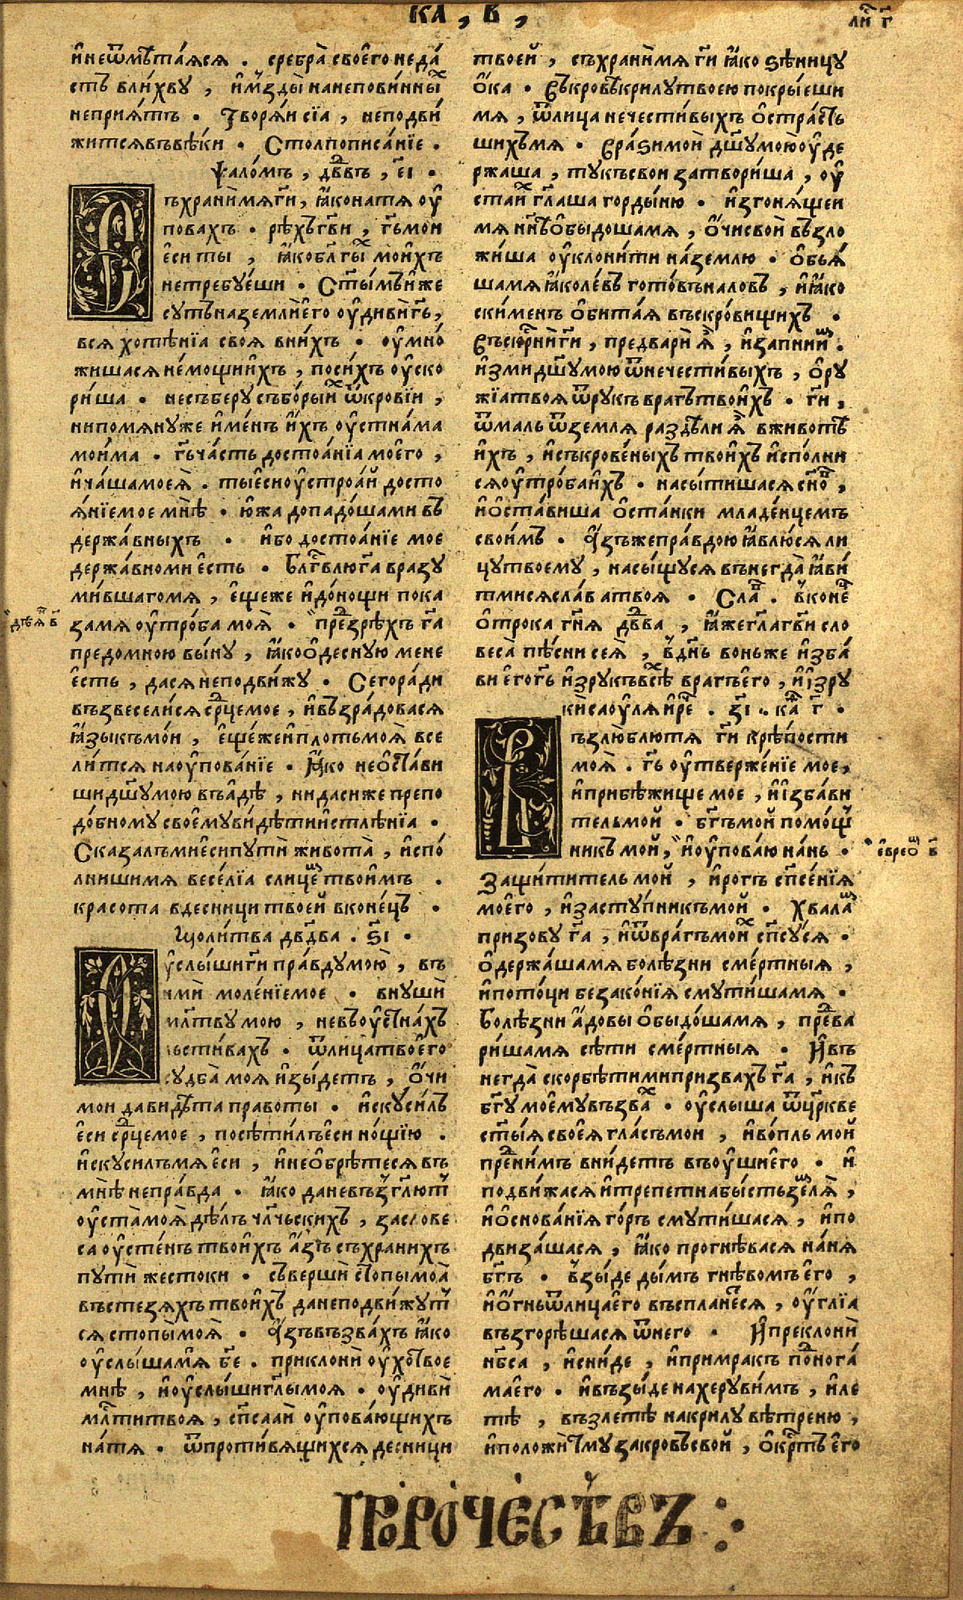 КА , В ,
ли҃ г҃
и҆неѿмѣта́яся . сребра̀ своего̀ неда́
стъ вли́хву , и҆мзды̀ нанепови́нны
неприя́тъ . Творя́и сїа̀ , неподви́
житсявъвѣ́ки . Столпописа́нїе .
Ѱало́мъ , дв҃двъ , є҃і .
Съхрани́мяги҃ , ꙗ҆́конатя ѹ҆
повахъ . рѣ́хъгв҃и , гь҃мои
є҆си́ ты̀ , ꙗ҆́кобл҃гы́хъ мои́хъ
нетребу́еши . Ст҃ы́мъи́же
сѹ́тьназемли̑его̀ ѹ҆диви̑гь҃ ,
вся хотѣ́нїа своя̀ вни́хъ . ѹ҆мно́
жишасяне́мощии́хъ , поси́хъ ѹ҆ско
ри́ша . несъберу̀ събо́рыи́хъ ѿкрові́и ,
нипомяну́же и҆ме́нъ и҆́хъ ѹ҆стна́ма
мои́ма . гь҃ча́сть достоа́нїа моего̀ ,
и҆ча́шамоея̀ . ты̀еси̑ѹ҆строа́й досто
я́нїемое мнѣ̀ . ю҆́жа допадо́шами въ
держа́вныхъ . и҆́бо достоа́нїе мое
держа́вноми є҆́сть . Бл҃гвлю̀га҃ вразу
ми́вшагомя , є҆ще́же и҆до́нощи пока
за́мя ѹ҆тро́ба моя̀ . пре́дзрѣхъ га҃
предомно́ю вы́ну , ꙗ҆́коо҆десну́ю менѐ
є҆́сть , да́ся неподви́жу . Сегора́ди
възвесели́ся ср҃цемое , и҆въ́зра́довася
ꙗ҆зы́къмо́и , є҆ще́жеипло́тьмоя̀ все
ли́тся наѹ҆пова́нїе . Ꙗ҆́ко неоста́ви
шидш҃умою̀ въа́дѣ , нида́сиже препо
до́бному своемѹ̀ви́дѣтиистлѣ́нїа .
Сказа́лъмиеси̑пути̑ живота̀ , и҆спо́
лнишимя весе́лїа слице́мъ твои́мъ .
красота̀ вдесни́ци твое́й вконе́цъ .
Моли́тва дв҃два . ѕ҃і .
Услы́шиги҃ пра́вдумою̀ , въ
нми̑ моле́нїемое . внуши̑
мл҃тву мою , невъѹ҆стна́хъ
льсти́вахъ . ѿлица̀твоего̀
судба̀ моя̀ и҆зы́детъ , о҆́чи
мои да ви́дѣта пра́воты . и҆скуси́лъ
є҆си̑ ср҃цемое , посѣти́лъеси̑ но́щїю .
и҆скуси́лъмя є҆си̑ , и҆необрѣ́теся въ
мнѣ̀ непра́вда . ꙗ҆́ко даневъзгл҃ютъ
ѹ҆ста̀моя̀ дѣ́лъ чл҃ческихъ , засло́ве
са ѹ҆сте́нъ твои́хъ а҆́зъ съхрани́хъ
пути̑ же́стоки . съверши̑ стопы̀моя̀
въстезя́хъ твои́хъ данеподви́жут
ся стопы̀моя̀ . А҆́зъвъзва́хъ ꙗ҆́ко
ѹ҆слы́шамя бе҃ . приклони̑ ѹ҆́хотвое
мнѣ̀ , и҆ѹ҆слы́шигл҃ымоя . ѹ҆диви̑
мл҃титвоя , сп҃саай ѹ҆пова́ющихъ
на́тя . ѿпроти́вящихся десни́ци
твоей , съхрани́мя ги҃ ꙗ҆́ко зѣ́ницу
о҆́ка . Въкро́въкрилу̀твоею̀ покры́еши
мя , ѿлица нечести́выхъ о҆стра́сть
ши́хъмя . Врази̑мой дш҃умою̀ѹ҆де
ржа́ша , ту́късвои затвори́ша , ѹ҆
ста́их гл҃аша горды́ню . и҆згоня́щеи
мя нн҃ѣобыдо́шамя , о҆́чисвои́ възло
жи́ша ѹ҆клони́ти на́землю . о҆бъя́
шамя ꙗ҆́коле́въ гото́въналовъ , и҆ꙗ҆́ко
ски́менъ о҆бита́я въскро́вищихъ .
Въскрс҃ни̑ги҃ , предвари̑ я҆̀ , и҆запни̑и́мъ .
и҆зми̑дш҃умою ѿнечести́выхъ , о҆ру́
жїатвоя ѿру́къ вра́гътвои́хъ . ги҃ ,
ѿмалъ ѿземля̀ раздѣли̑ я҆̀ вживотѣ̀
и҆́хъ , и҆съкрове́ныхъ твои́хъ и҆спо́лни
сяѹ҆тро́баи́хъ . насы́тишася сн҃овъ ,
и҆о҆ста́виша о҆ста́нки младе́нцемъ
свои́мъ . А҆́зъжепра́вдою ꙗ҆влю́ся ли
цутвоему̀ , насы́щуся вънегда̀ ꙗ҆ви́
тмися́сла́ва твоя̀ . Сла̑ . вконе́
о҆трока гн҃я дв҃да , ꙗ҆́жегл҃агв҃и сло
веса̀ пѣ́сни сея̀ , вдн҃ь воньже и҆зба́
ви его̀гь҃ и҆зру́къвсѣ́хъ враге́го , и҆изру
ки̑саѹ́ля и҆ре́ . з҃і . ка҃ѳ г҃ .
Възлю́блютя ги҃ крѣ́пости
моя̀ . гь҃ ѹ҆тверже́нїе мое ,
и҆прибѣ́жище мое , и҆изба́ви
тель мой . бг҃ъмой помо́щ
никъ мой , и҆ѹ҆пова́ю на́нь .
Защи́титель мой , и҆ро́гъ сп҃се́нїя
моего , и҆засту́пникъмой . Хвала́
призову̀ га҃ , и҆ѿвра́гъмои́хъ сп҃су́ся .
о҆держа́шамя болѣ́зни сме́ртныя ,
и҆пото́ци беззако́нїя смути́шамя .
Болѣ́зни а҆́довы о҆быдо́шамя , пре́два
ри́шамя сѣ́ти сме́ртныя . И҆въ
негда̀ скорбѣ́тимипризва́хъ га҃ , и҆къ
бг҃у моему̀възва́хъ . ѹ҆слы́ша ѿцр҃кве
ст҃ы́я своея̀ гла́съмои , и҆во́пль мой
пре́днимъ вни́детъ въѹ҆́шиего̀ . и҆
подви́жася и҆тре́петнабы́стьземля̀ ,
и҆о҆снова́нїя го́ръ смути́шася , и҆по
двиза́шася , ꙗ҆́ко прогнѣ́вася на́ня
бг҃ъ . взы́де ды́мъ гнѣ́вомъего̀ ,
и҆о҆́гньѿлица̀его̀ въспла́неся , ѹ҆́глїа
възгорѣ́шася ѿнего . И҆преклони̑
нб҃са , и҆сни́де , и҆при́мракъ поднога́
маего . и҆взы́де нахеруви́мъ , и҆ле
тѣ̀ , възлетѣ̀ накрилу̀ вѣ́треню ,
и҆положи̑тму̀ закро́въсвой , о҆́крстъ его
дѣя҃ в҃
є҆вре́о в҃
ПРОРОЧЕСТВЪ